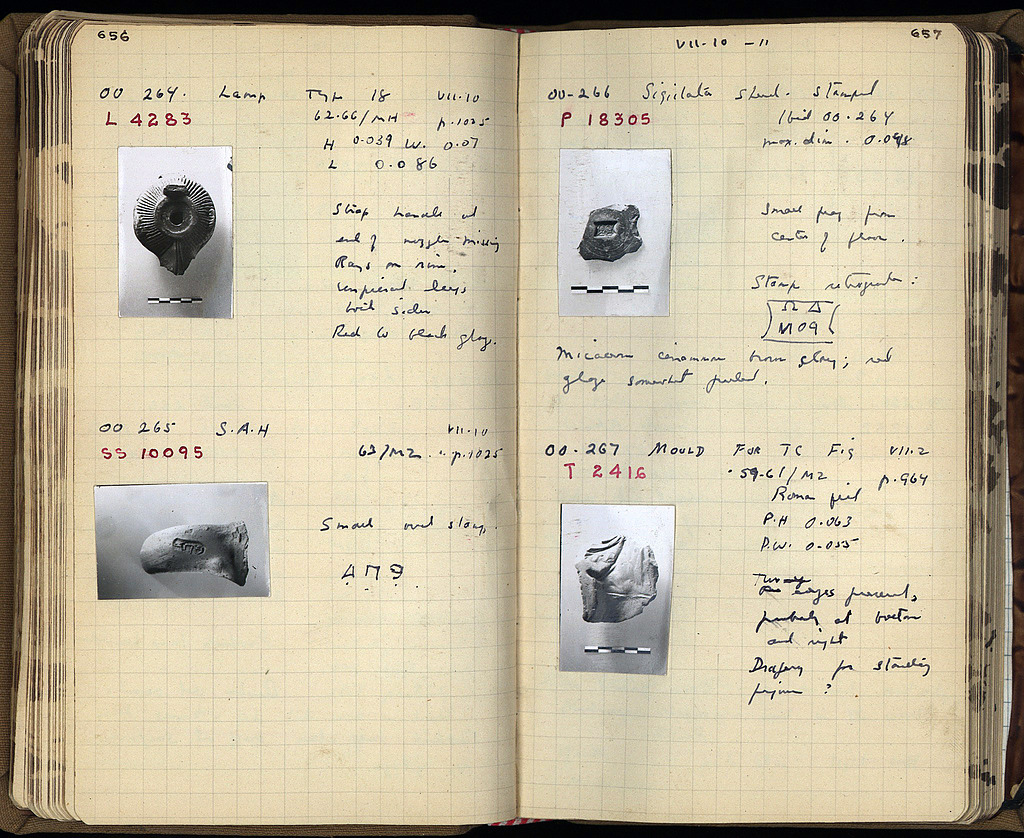 656
OO 264. Lamp Type 18 VII.10
L 4283
62.66/MH p.1025
H 0.039 W. 0.07
L 0.086
Strap handle and
end of nozzle missing
Rays on rim.
both sides
Red to black glaze.
OO 265 S.A.H VII.10
SS 10095
63/MZ. p.1025
Small oval stamp.
ΑΠΘ
VII.10 - 11
657
OO-266 Sigillata sherd. stamped
P 18305
Ibid OO.264
max. dim. 0.048
Small frag from
center of floor.
Stamp retrograde:
Ω Δ
Micaceous cinnamon brown clay; red
glaze somewhat peeled.
OO.267 MOULD FOR TC Fig VII.2
T 2416
59-61/MZ p.964
Roman fill
P.H 0.063
P.W. 0.055
Two edges present,
probably at bottom
and right
Drapery for standing
figure ?